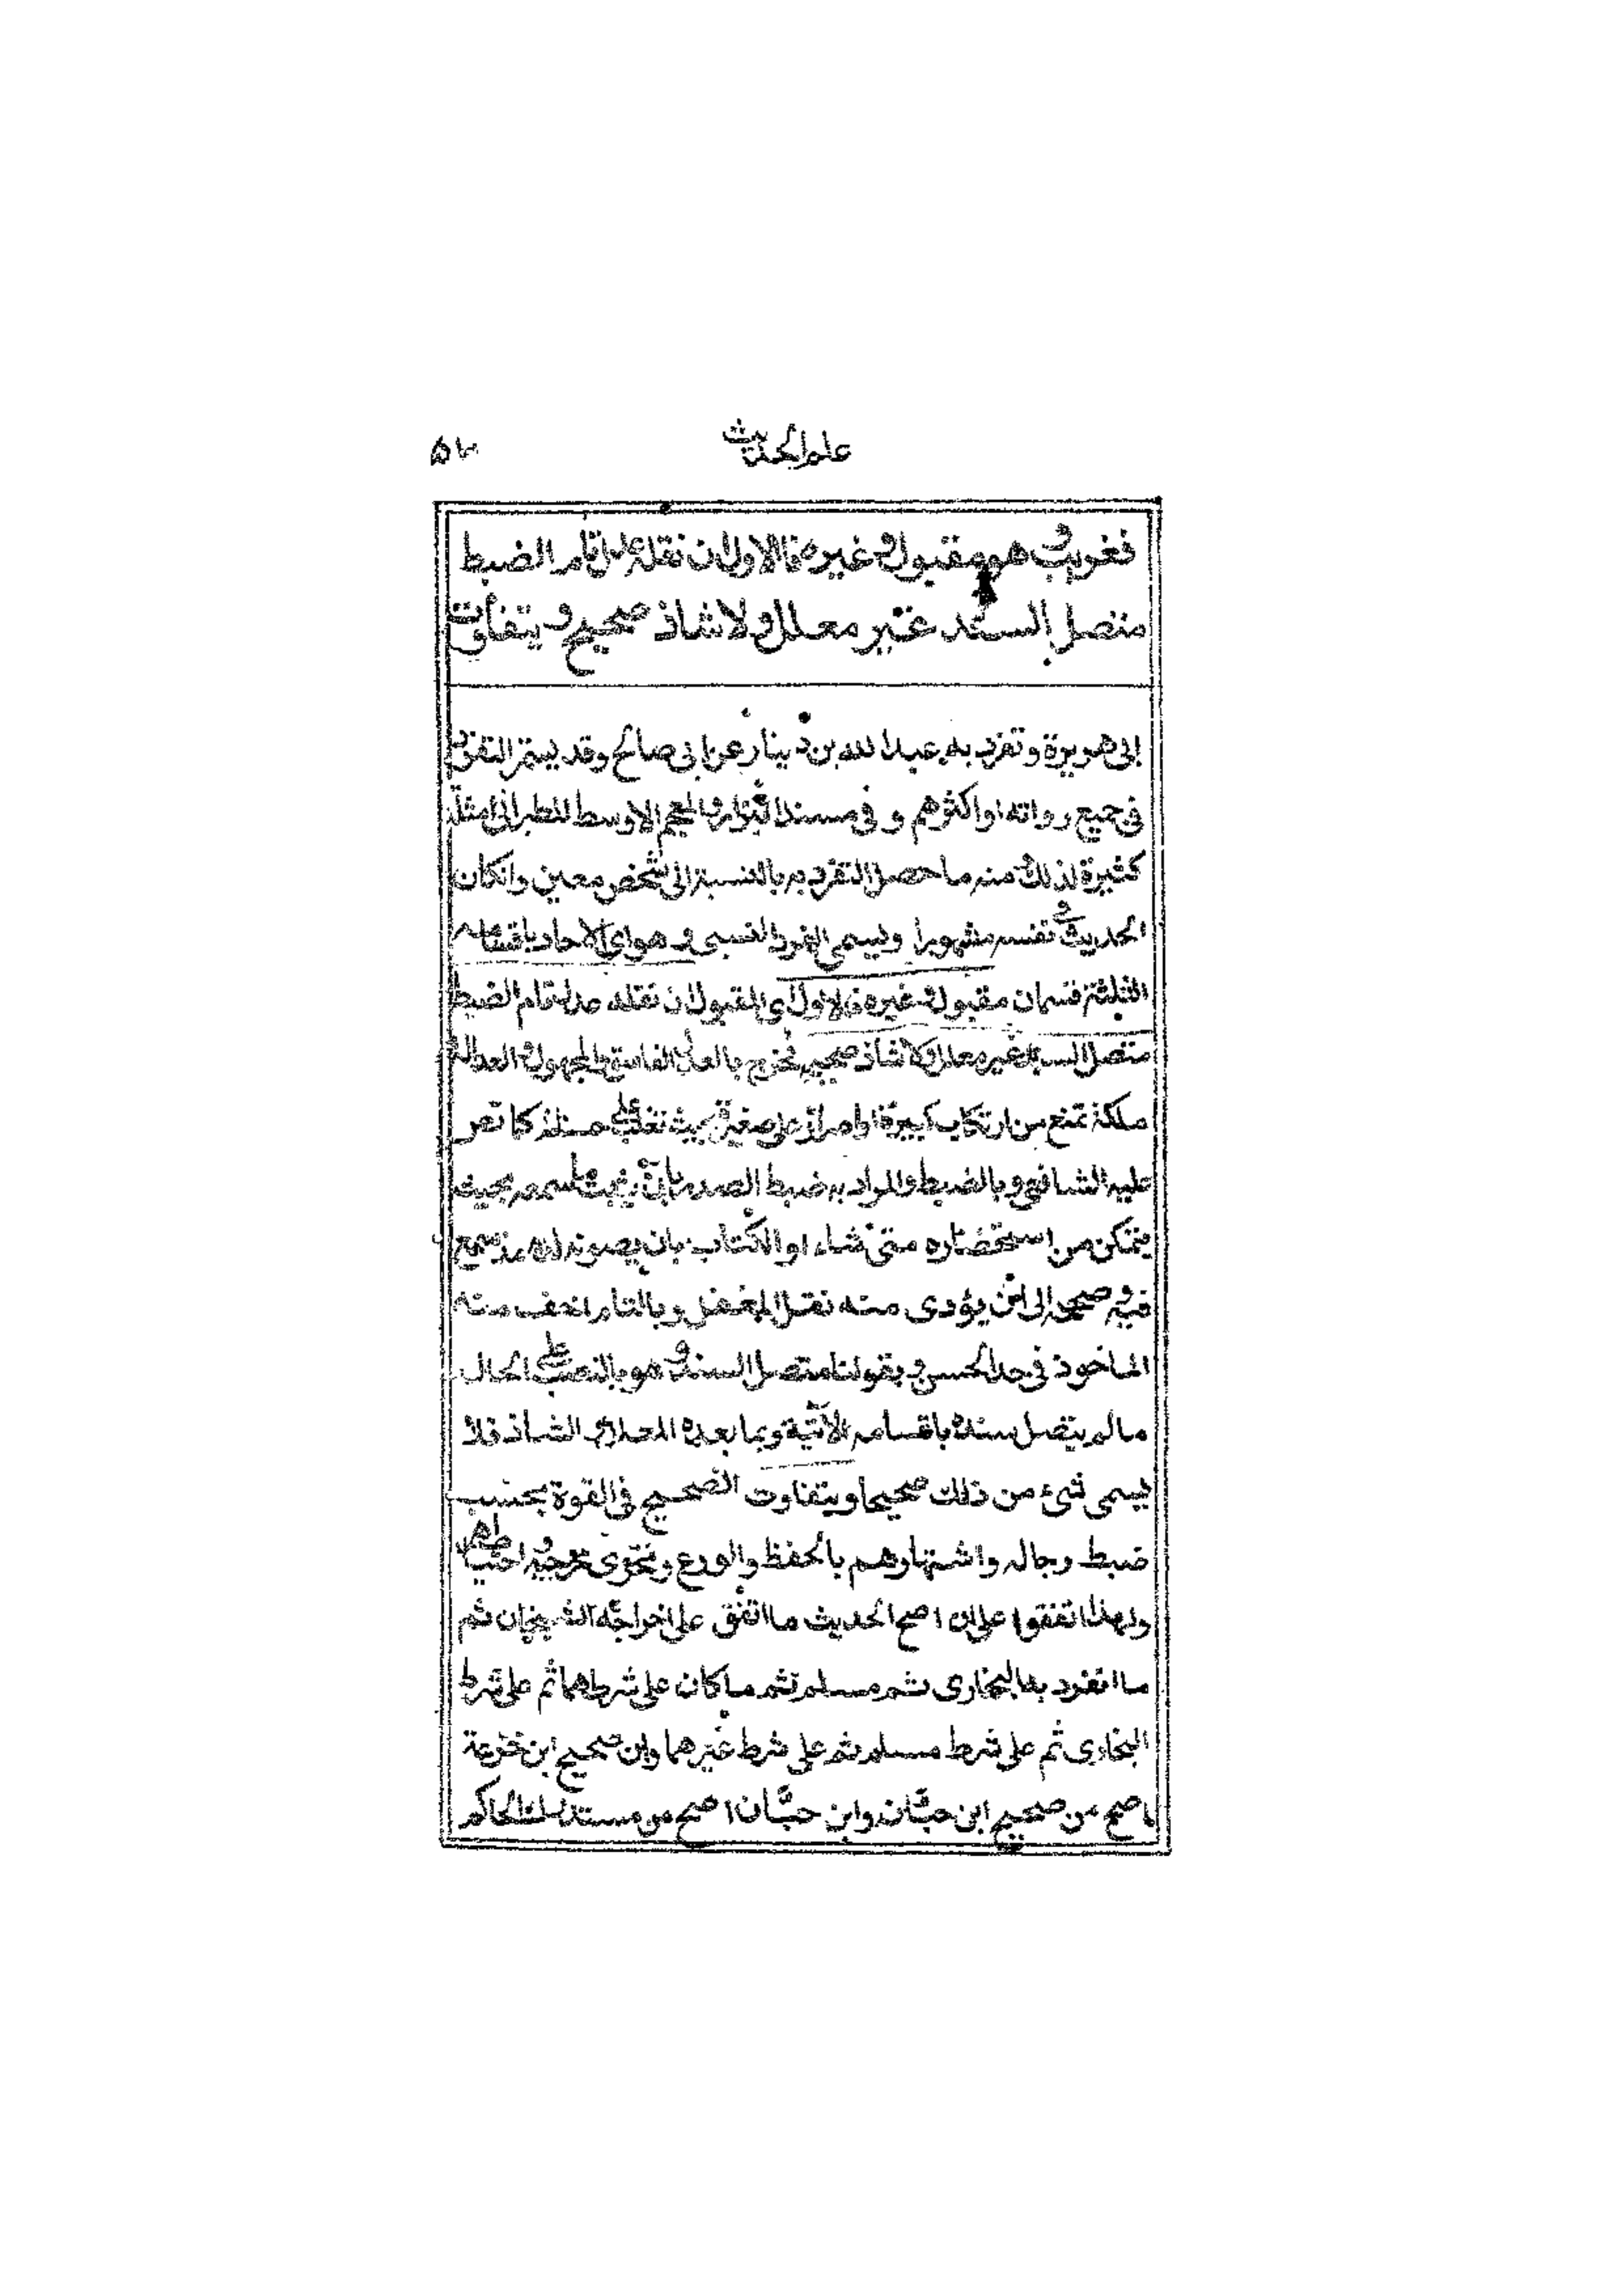 علم الحديث
فغريب وهو مقبول وغيره فالاول ان نقله عدل تام الضبط
متصل السند غير معلل ولا شاذ صحيح ويتفاوت
ابى هريرة وتفرد به عبد الله بن دينار عن ابى صالح وقد يستمر التفرد
فى جميع رواته او اكثرهم وفى مسند البزار والمعجم الاوسط للطبرانى امثلة
كثيرة لذلك ومنه ما حصل التفرد به بالنسبة الى شخص معين وانكان
الحديث فى نفسه مشهورا ويسمى الفرد النسبى وهو اى الاحاد باقسامه
الثلثة قسمان مقبول وغيره فالاول اى المقبول ان نقله عدل تام الضبط
متصل السند غير معلل ولا شاذ صحيح فخرج بالعدل الفاسق والمجهول والعدالة
ملكة تمنع من ارتكاب كبيرة او اصرار على صغيرة بحيث تغلب على حسناته كما نص
عليه الشافعى وبالضبط والمراد به ضبط الصدر بان يثبت ما سمعه بحيث
يتمكن من استحضاره متى شاء او الكتاب بان يصونه لديه منذ سمع
فيه وصححه الى ان يؤدى منه نقل المغفل وبالتام اخف منه
الماخوذ فى حد الحسن وبقولنا متصل السند وهو بالنصب على الحال
ما لم يتصل سنده باقسامه الآتية وبما بعده المعلل والشاذ فلا
يسمى شئ من ذلك صحيحا ويتفاوت الصحيح فى القوة بحسب
ضبط رجاله واشتهارهم بالحفظ والورع وتحرى مخرجيه واحتياطهم
ولهذا اتفقوا على ان اصح الحديث ما اتفق على اخراجه الشيخان ثم
ما انفرد به البخارى ثم مسلم ثم ما كان على شرطهما ثم على شرط
البخارى ثم على شرط مسلم ثم على شرط غيرهما وان صحيح ابن خزيمة
اصح من صحيح ابن حبان وابن حبان اصح من مستدرك الحاكم